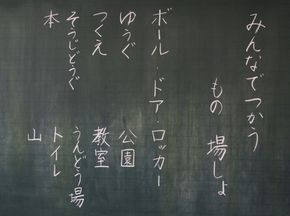 みんなでつかう
もの 場しょ
ボール・ドア・ロッカー
ゆうぐ 公園
つくえ 教室
そうじどうぐ うんどう場
本 トイレ
山